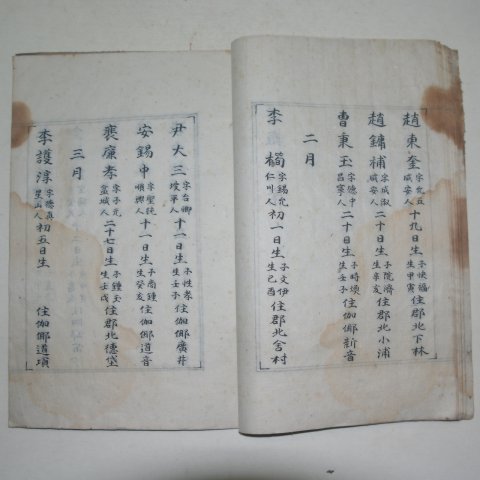 趙東奎 字允五 咸安人 十九日生 生甲寅 子焕福 住郡北下林
趙鏞補 字成淑 咸安人 二十日生 生辛亥 子院濟 住郡北小浦
曺秉玉 字川中 昌寧人 二十日生 生壬子 子時煥 住伽倻新音
二月
李 字錫允 仁川人 初一日生 生己酉 子文伊 住郡北舍村
尹大三 字台卿 坡平人 十一日生 生壬子 子性孝 住伽倻廣井
安錫中 字聖純 順興人 十一日生 生癸亥 子商鍾 住伽倻道音
裵廉孝 字子允 盆城人 二十七日生 生壬戌 子鍾玉 住郡北德垈
三月
李護淳 字德眞 星山人 初五日生 住伽倻道項